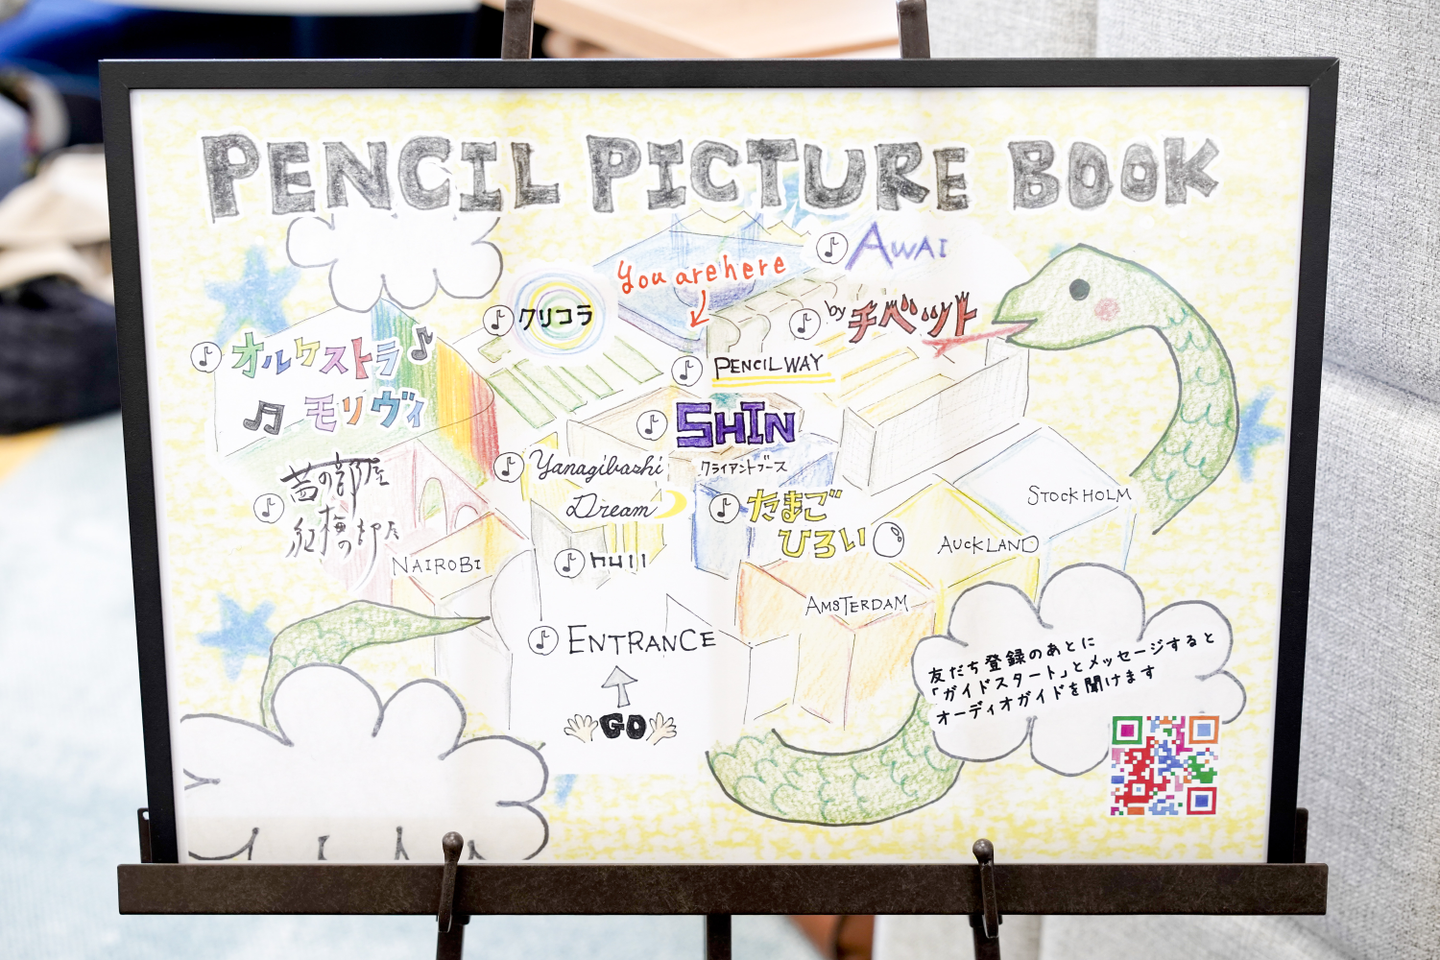 PENCIL PICTURE BOOK
AWAI
You are here
クリコラ
by チベット
オルケストラ
モリヴィ
PENCIL WAY
SHIN
クライアントブース
Yanagibashi
Dream
茜の部屋
紅梅の部屋
たまご
ひろい
STOCKHOLM
AUCKLAND
NAIROBI
null
AMSTERDAM
ENTRANCE
GO
友だち登録のあとに
「ガイドスタート」とメッセージすると
オーディオガイドを聞けます